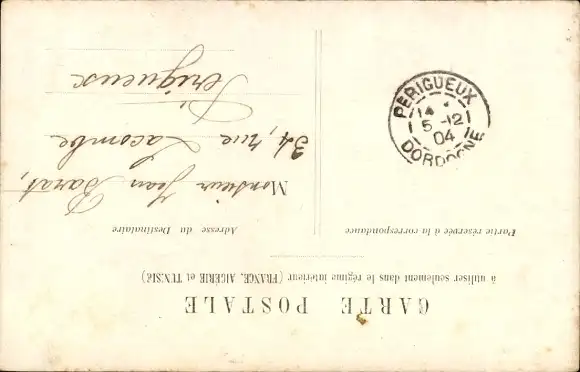 CARTE POSTALE
à utiliser seulement dans le régime intérieur (FRANCE, ALGERIE et TUNSIE)
Partie réservée à la correspondance
Adresse du Destinataire
Monsieur Jean Barat,
34, rue Lacombe
Périgueux
PERIGUEUX
5 -12
04
DORDOGNE